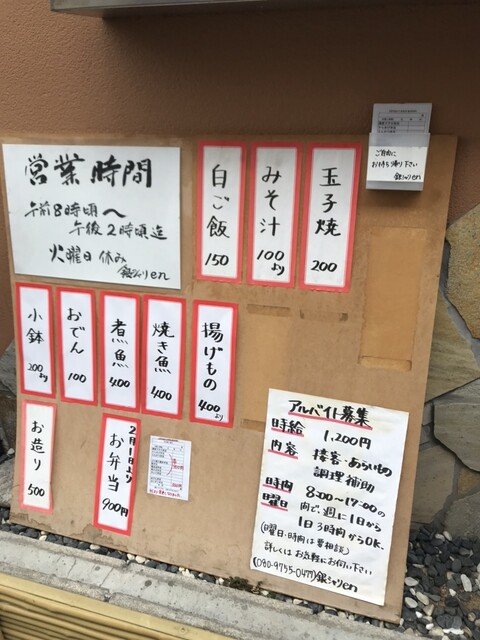 営業時間
午前8時頃〜
午後2時頃迄
火曜日休み
銀シャリen
白ご飯
150
みそ汁
100より
玉子焼
200
ご自由に
お持ち帰り下さい
銀シャリen
小鉢
200より
おでん
100
煮魚
400
焼き魚
400
揚げもの
400より
お造り
500
2月1日より
お弁当
900円
アルバイト募集
時給 1,200円
内容 接客・あらいもの
調理補助
時間 8:00〜17:00の
曜日 内で、週に1日から
1日3時間からOK、
(曜日・時間は要相談)
詳しくはお気軽にお伺い下さい
(080-9755-0477)銀シャリen